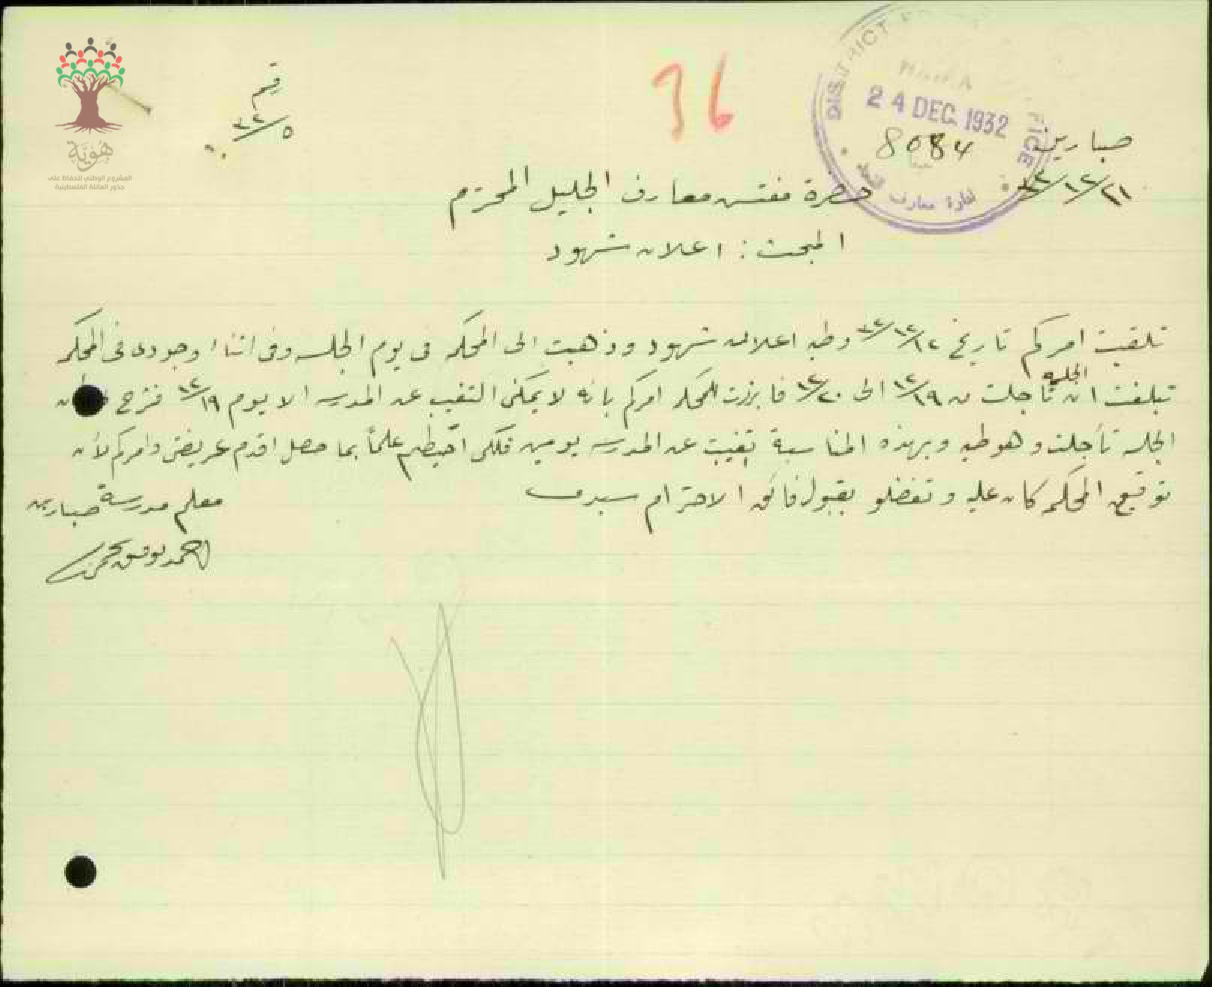 هوية
المشروع الوطني للحفاظ على
جذور العائلة الفلسطينية
رقم
٥/٣٢
36
DISTRICT
HAIFA
24 DEC 1932
8084
FICE
ادارة معارف
صبارين
٢١/١٢/٣٢
حضرة مفتش معارف الجليل المحترم
المبحث : اعلان شهود
تلقيت امركم تاريخ ١٢/١٢/٣٢ وطيه اعلان شهود وذهبت الى المحكمة في يوم الجلسه وفي اثناء وجودي في المحكمة
تبلغت ان الجلسه تأجلت من ١٩/١٢ الى ٢٠/١٢ فابرزت للمحكمه امركم بانه لا يمكن التغيب عن المدرسه الا يوم ١٩/١٢
الجلسه تأجلت وهو طيه وبهذه المناسبة تغيبت عن المدرسه يومين فلكي احيطكم علماً بما حصل اقدم عريضتي وامركم لأن
توقيع المحكمه كان عليه وتفضلو بقبول فائق الاحترام سيدي
معلم مدرسة صبارين
احمد توفيق